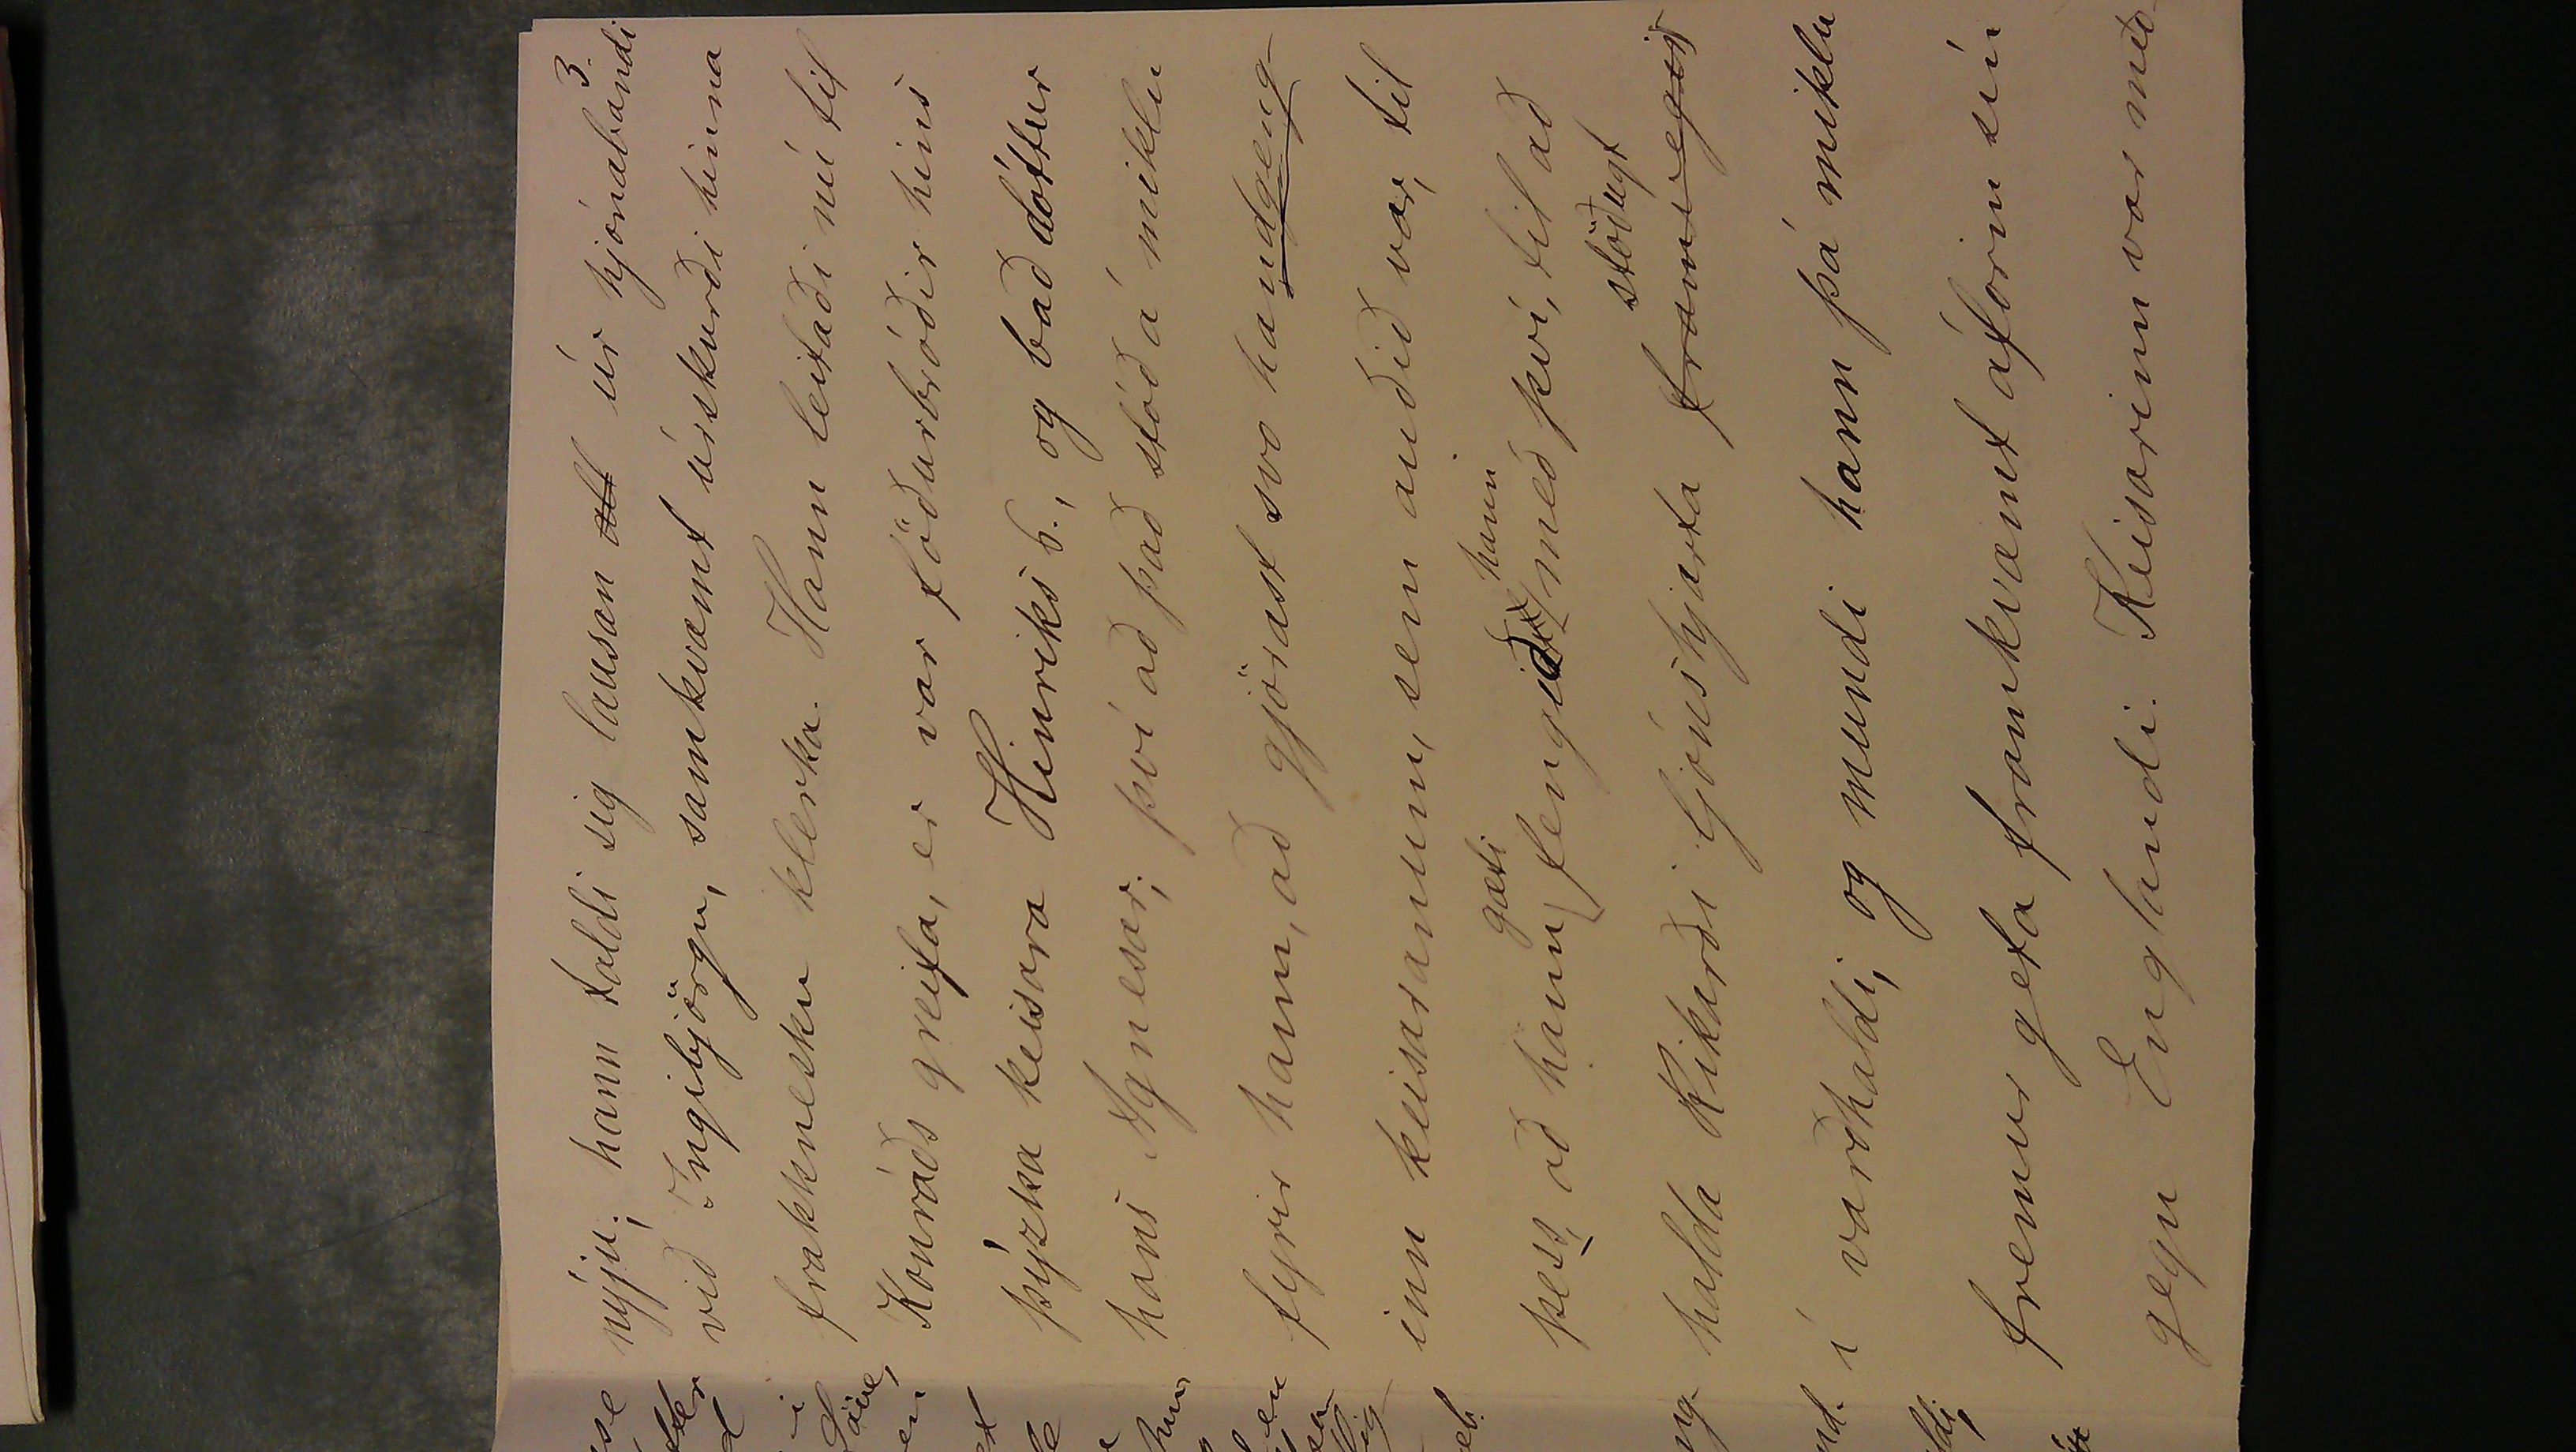 3.
nýju; hann taldi sig lausan úr hjónabandi
við Ingibjörgu, samkvæmt úrskurði hinna
frakknesku klerka. Hann leitaði nú til
Konráðs greifa, er var föðurbróðir hins
þýzka keisara Hinriks 6., og bað dóttur
hans Agnesar; því að það stóð á miklu
fyrir hann, að gjörast svo handgeng-
inn keisaranum, sem auðið var, til
þess, að hann gæti fengið hann með því, til að
halda Rikarði ljónshjarta framvegis stöðugt
í varðhaldi; og mundi hann þá miklu
fremur geta framkvæmt áform sín
gegn Englandi. Keisarinn var með-